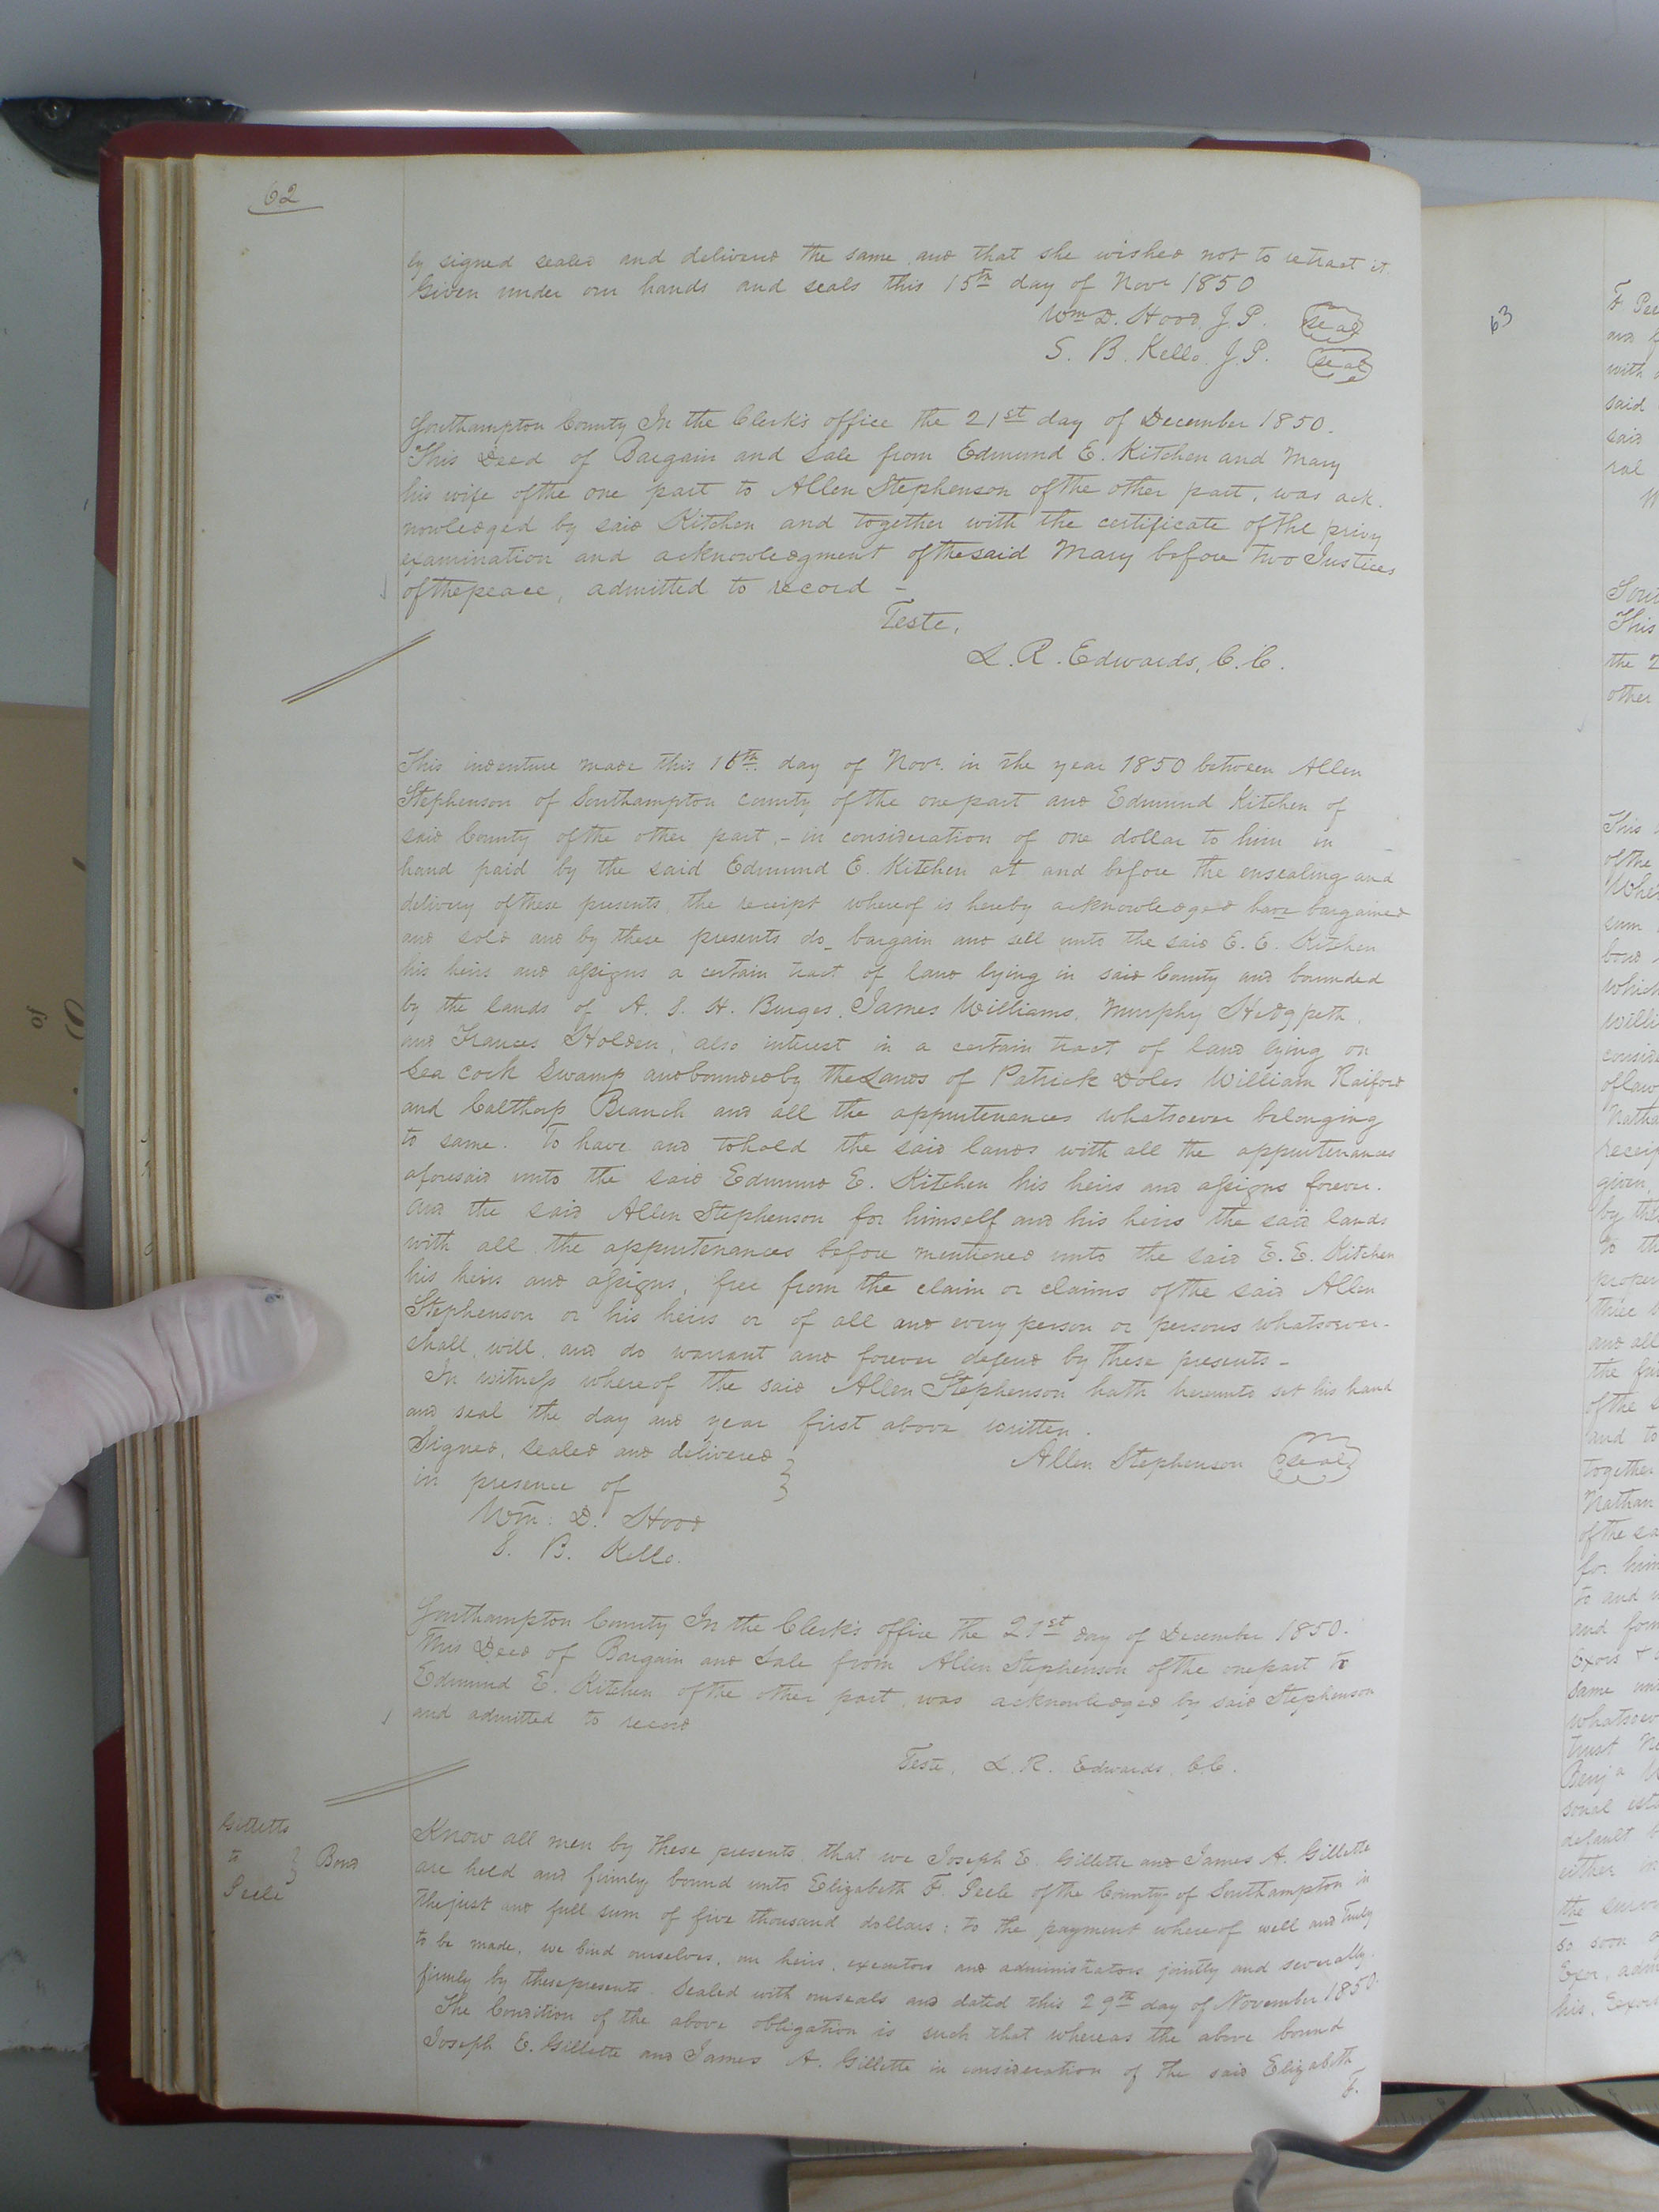 62
by signed sealed and delivered the same and that she wished not to retract it.
Given under our hands and seals this 15th day of Novr 1850
Wm D. Hood J.P. seal
S. B. Kello J.P. seal
Southampton County In the Clerk's office the 21st day of December 1850.
This Deed of Bargain and Sale from Edmund E. Kitchen and Mary
his wife of the one part to Allen Stephenson of the other part, was ack.
nowledged by said Kitchen and together with the certificate of the privy
examination and acknowledgment of the said Mary before two Justices
of the peace, admitted to record –
Teste,
L. R. Edwards, C. C.
This indenture made this 16th day of Novr. in the year 1850 between Allen
Stephenson of Southampton county of the one part and Edmund Kitchen of
said County of the other part, – in consideration of one dollar to him in
hand paid by the said Edmund E. Kitchen at and before the ensealing and
delivery of these presents, the receipt whereof is hereby acknowledged have bargained
and sold and by these presents do bargain and sell unto the said E. E. Kitchen
his heirs and assigns a certain tract of land lying in said County and bounded
by the lands of A. S. H. Burges, James Williams, Murphy Hedgpeth,
and Frances Holden, also interest in a certain tract of land lying on
Sea cock Swamp and bounded by the lands of Patrick Doles William Raiford
and Calthorp Branch and all the appurtenances whatsoever belonging
to same. To have and to hold the said lands with all the appurtenances
aforesaid unto the said Edmund E. Kitchen his heirs and assigns forever.
And the said Allen Stephenson for himself and his heirs the said lands
with all the appurtenances before mentioned unto the said E. E. Kitchen
his heirs and assigns, free from the claim or claims of the said Allen
Stephenson or his heirs or of all and every person or persons whatsoever –
shall, will, and do warrant and forever defend by these presents –
In witness whereof the said Allen Stephenson hath hereunto set his hand
and seal the day and year first above written.
Signed, sealed and delivered
in presence of
Allen Stephenson seal
Wm: D. Hood
S. B. Kello.
Southampton County In the Clerk's office the 21st day of December 1850.
This Deed of Bargain and Sale from Allen Stephenson of the one part to
Edmund E. Kitchen of the other part was acknowledged by said Stephenson
and admitted to record
Teste, L. R. Edwards, C.C.
Gilletts
to } Bond
Peele
Know all men by these presents that we Joseph E. Gillette and James A. Gillette
are held and firmly bound unto Elizabeth F. Peele of the County of Southampton in
the just and full sum of five thousand dollars; to the payment whereof well and truly
to be made, we bind ourselves, our heirs, executors and administrators jointly and severally.
firmly by these presents. Sealed with our seals and dated this 29th day of November 1850.
The Condition of the above obligation is such that whereas the above bound
Joseph E. Gillette and James A. Gillette in consideration of the said Elizabeth
F.
63
with
said
said
This
the
other
This
of the
sum
which
given
and all
of the
and to
together
Nathan
to and
same
either in
the
so soon